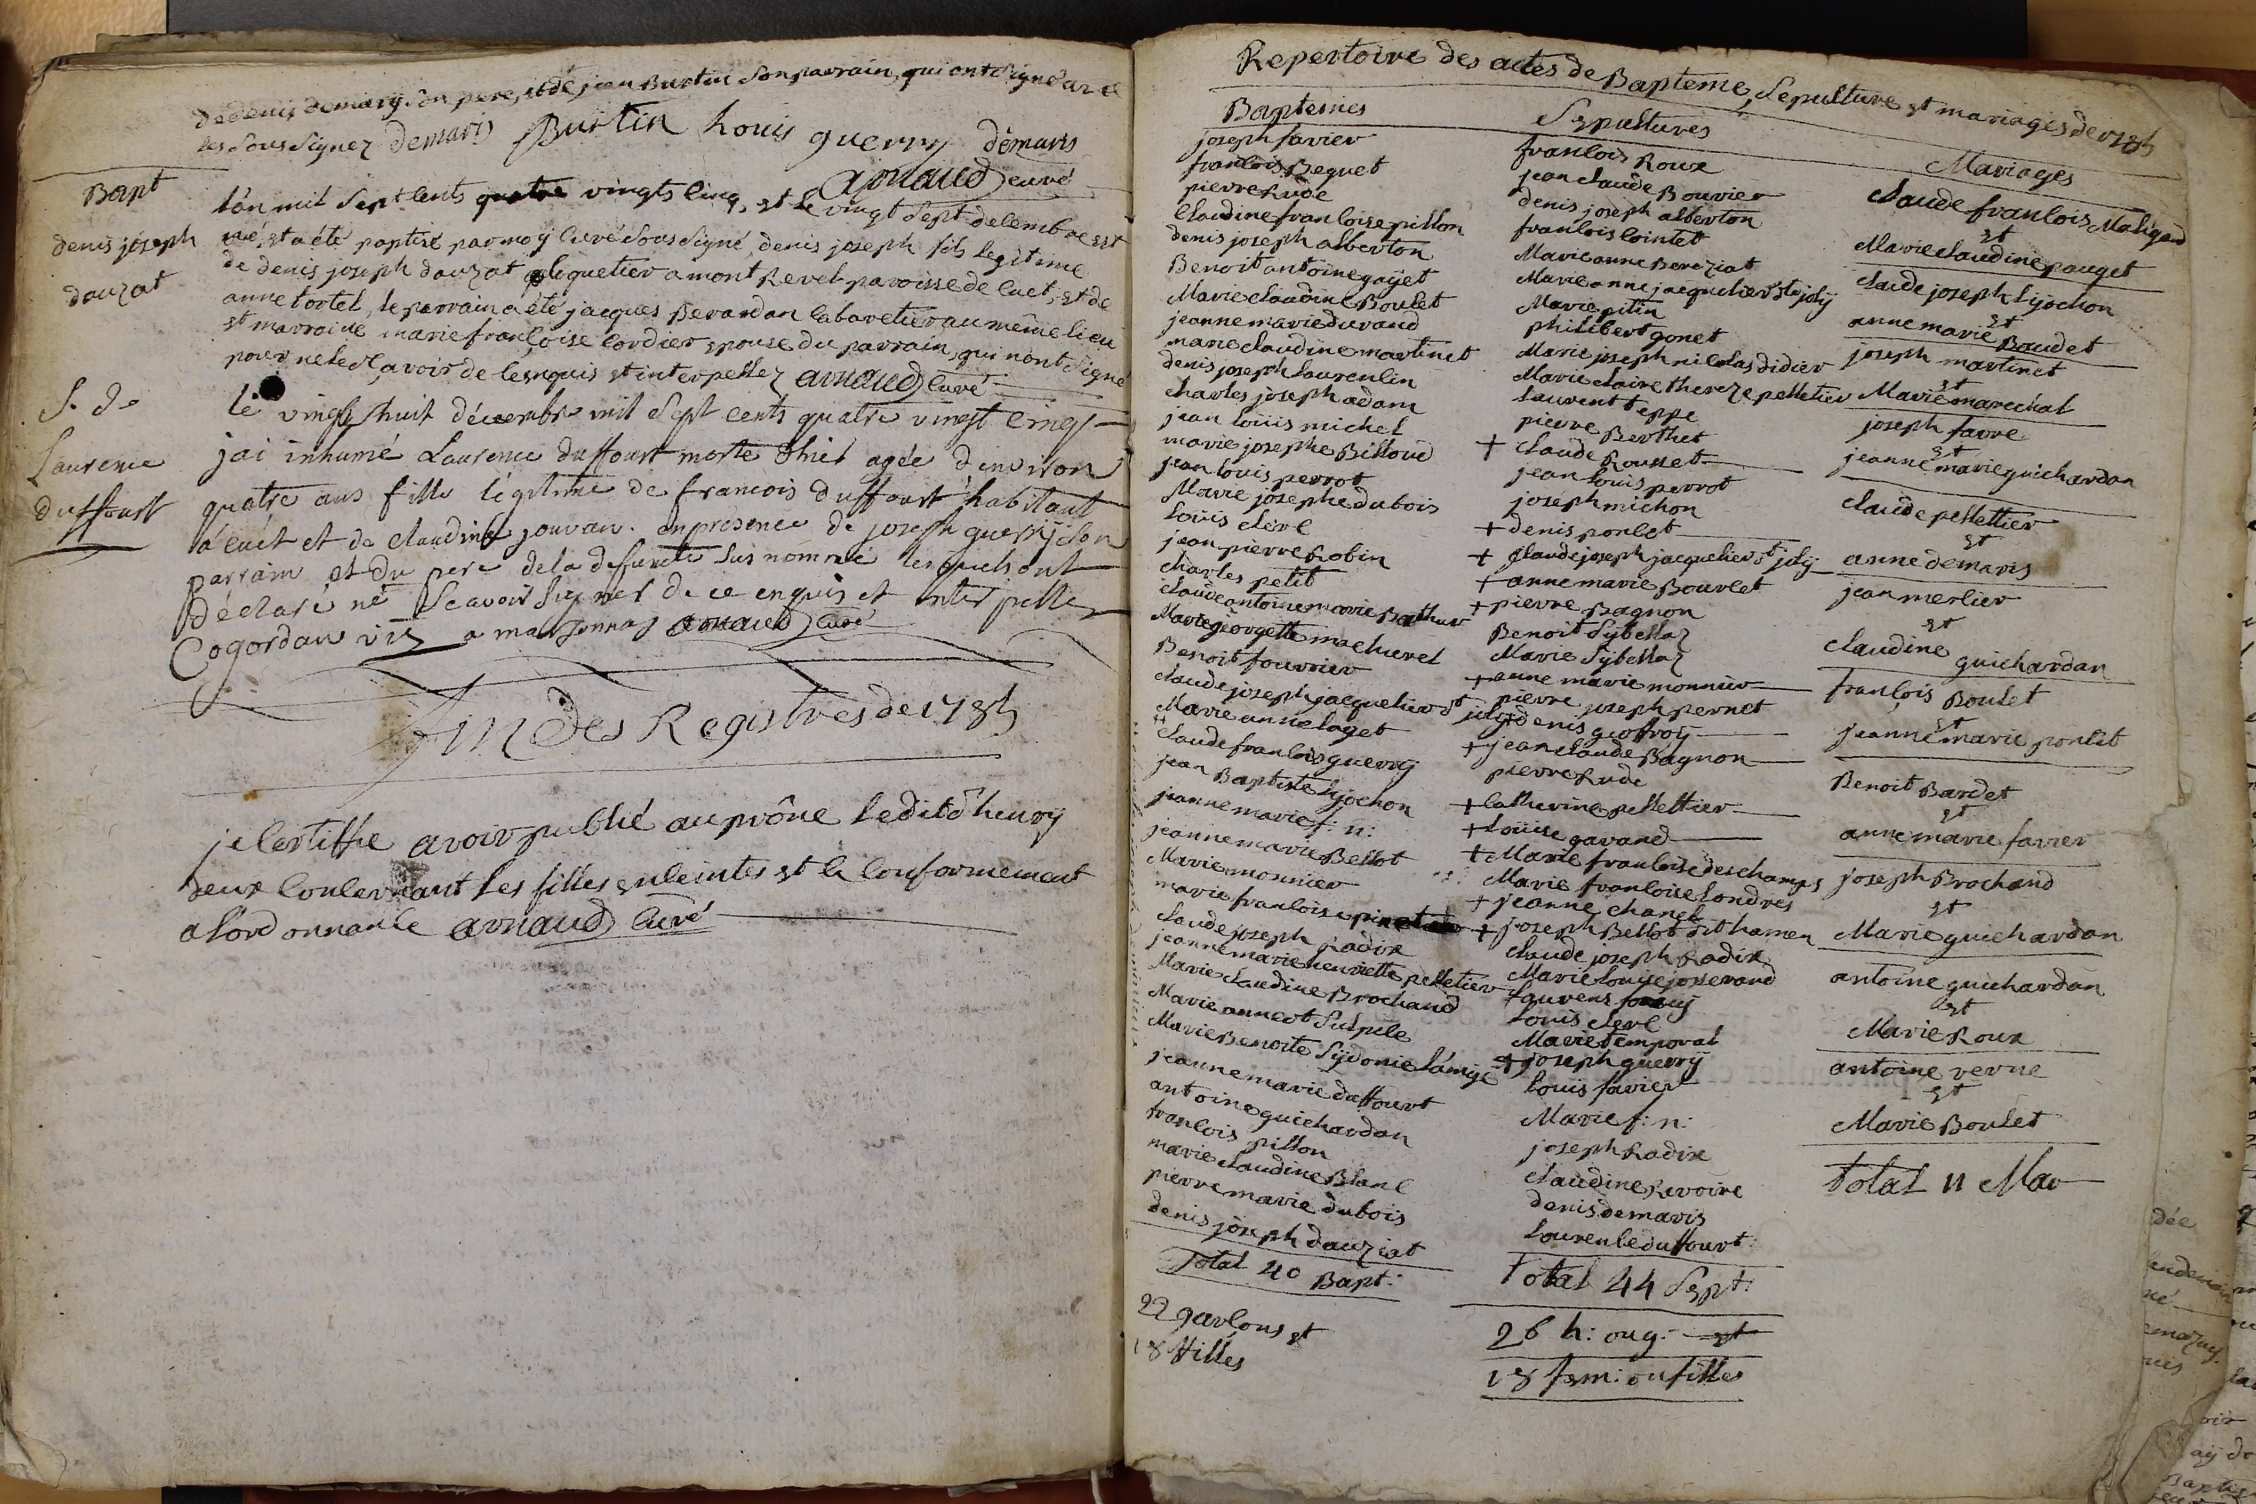 de denis demaris son pere, et de jean Burtin son parrain, qui ont signé avec
les sous signez demaris Burtin Louis guerry démaris
arnaud curé
Bapt
denis joseph
dauzat
l'an mil sept cents quatre vingts cinq, et le vingt sept decembre est
né, et a été baptisé par moy curé sous signé, denis joseph fils legitime
de denis joseph dauzat a mont Revel paroisse de cuet, et de
anne tortel, le parrain a été jacques Berardan cabaretier au même lieu
et marraine marie françoise Cordier epouse du parrain, qui n'ont signé
pour ne le sçavoir de ce enquis et interpellez arnaud curé
S. de
Laurence
duffourt
le vingt huit décembre mil sept cents quatre vingt cinq
j'ai inhumé Laurence duffourt morte d'hier agée d'environ
quatre ans fille légitime de francois duffourt habitant
a cuet et de claudine jouvan. en présence de joseph guerrij son
parrain et du pere de la defunte sus nommé lesquels ont
déclaré ne sçavoir signer de ce enquis et interpellez
Cogordan vic a marsonnas arnaud curé
fin des Registres de 1785
je Certiffie avoir publié au prône l'edit d'henry
deux Concernant les filles enceintes et ce conformement
a l'ordonnance arnaud curé
Repertoire des actes de Bapteme, Sepulture et mariages de 1785
Baptemes
joseph favier
francois Beguet
pierre Rude
Claudine francoise pillon
denis joseph alberton
Benoit antoine gayet
Marie Claudine Boulet
jeanne marie durand
marie claudine martinet
denis joseph Laurencin
charles joseph adam
jean loüis michel
marie josephe Billoud
jean louis perrot
Marie josephe dubois
Loüis clerc
jean pierre Robin
charles petit
claude antoine marie Bathur
Marie georgette machurel
Benoit fourrier
claude joseph jacquelier dt joly
Marie anne laget
claude francois guerry
jean Baptiste lyjochon
jeanne marie f: n:
jeanne marie Bellot
Marie monnier
marie francoise
claude joseph Radix
jeanne marie henriette pelletier
Marie claudine Brochand
Marie anne dt Sulpice
Marie Benoite Sydonie Lamyc
jeanne marie duffourt
antoine guichardan
francois pillon
marie claudine Blanc
pierre marie dubois
denis joseph dauziat
Total 40 Bapt:
22 garçons et
18 filles
Sepultures
francois Roux
jean claude Bouvier
denis joseph alberton
francois cointet
Marie anne Bereziat
Marie anne jacquelier dte joly
Marie pitin
philibert gonet
Marie joseph nicolas didier
Marie claire thereze pelletier
Laurent teppe
pierre Berthet
+ claude Rousset
jean louis perrot
joseph michon
+ denis poncet
+ claude joseph jacquelier dt joly
+ anne marie Bourcet
+ pierre Bagnon
Benoit Sybellaz
Marie Sybellaz
+ anne marie monnier
pierre joseph pernet
+ denis geofroy
+ jean claude Bagnon
pierre Rude
+ catherine pellettier
+ Loüise gavand
+ Marie francoise deschamps
Marie francoise Londres
+ jeanne chanel
+ joseph Bellot dit hamen
claude joseph Radix
Marie louise josserand
+ Laurens
Louis clerc
Marie Temporal
+ joseph guerrij
Louis favier
Marie f: n:
joseph Radix
claudine Revoire
denis demaris
Laurence duffourt:
Total 44 Sept:
26 h: ou g: et
18 fem: ou filles
Mariages
Claude francois Maligod
et
Marie claudine pauget
claude joseph lijochon
et
anne marie Boudet
joseph martinet
et
Marie marechal
joseph favre
et
jeanne marie guichardan
claude pellettier
et
anne demaris
jean merlier
et
claudine guichardan
françois Boulet
et
jeanne marie poncet
Benoit Bardet
et
anne marie favier
joseph Brochand
et
Marie guichardan
antoine guichardan
et
Marie Roux
antoine verne
et
Marie Boulet
Total 11 Mar